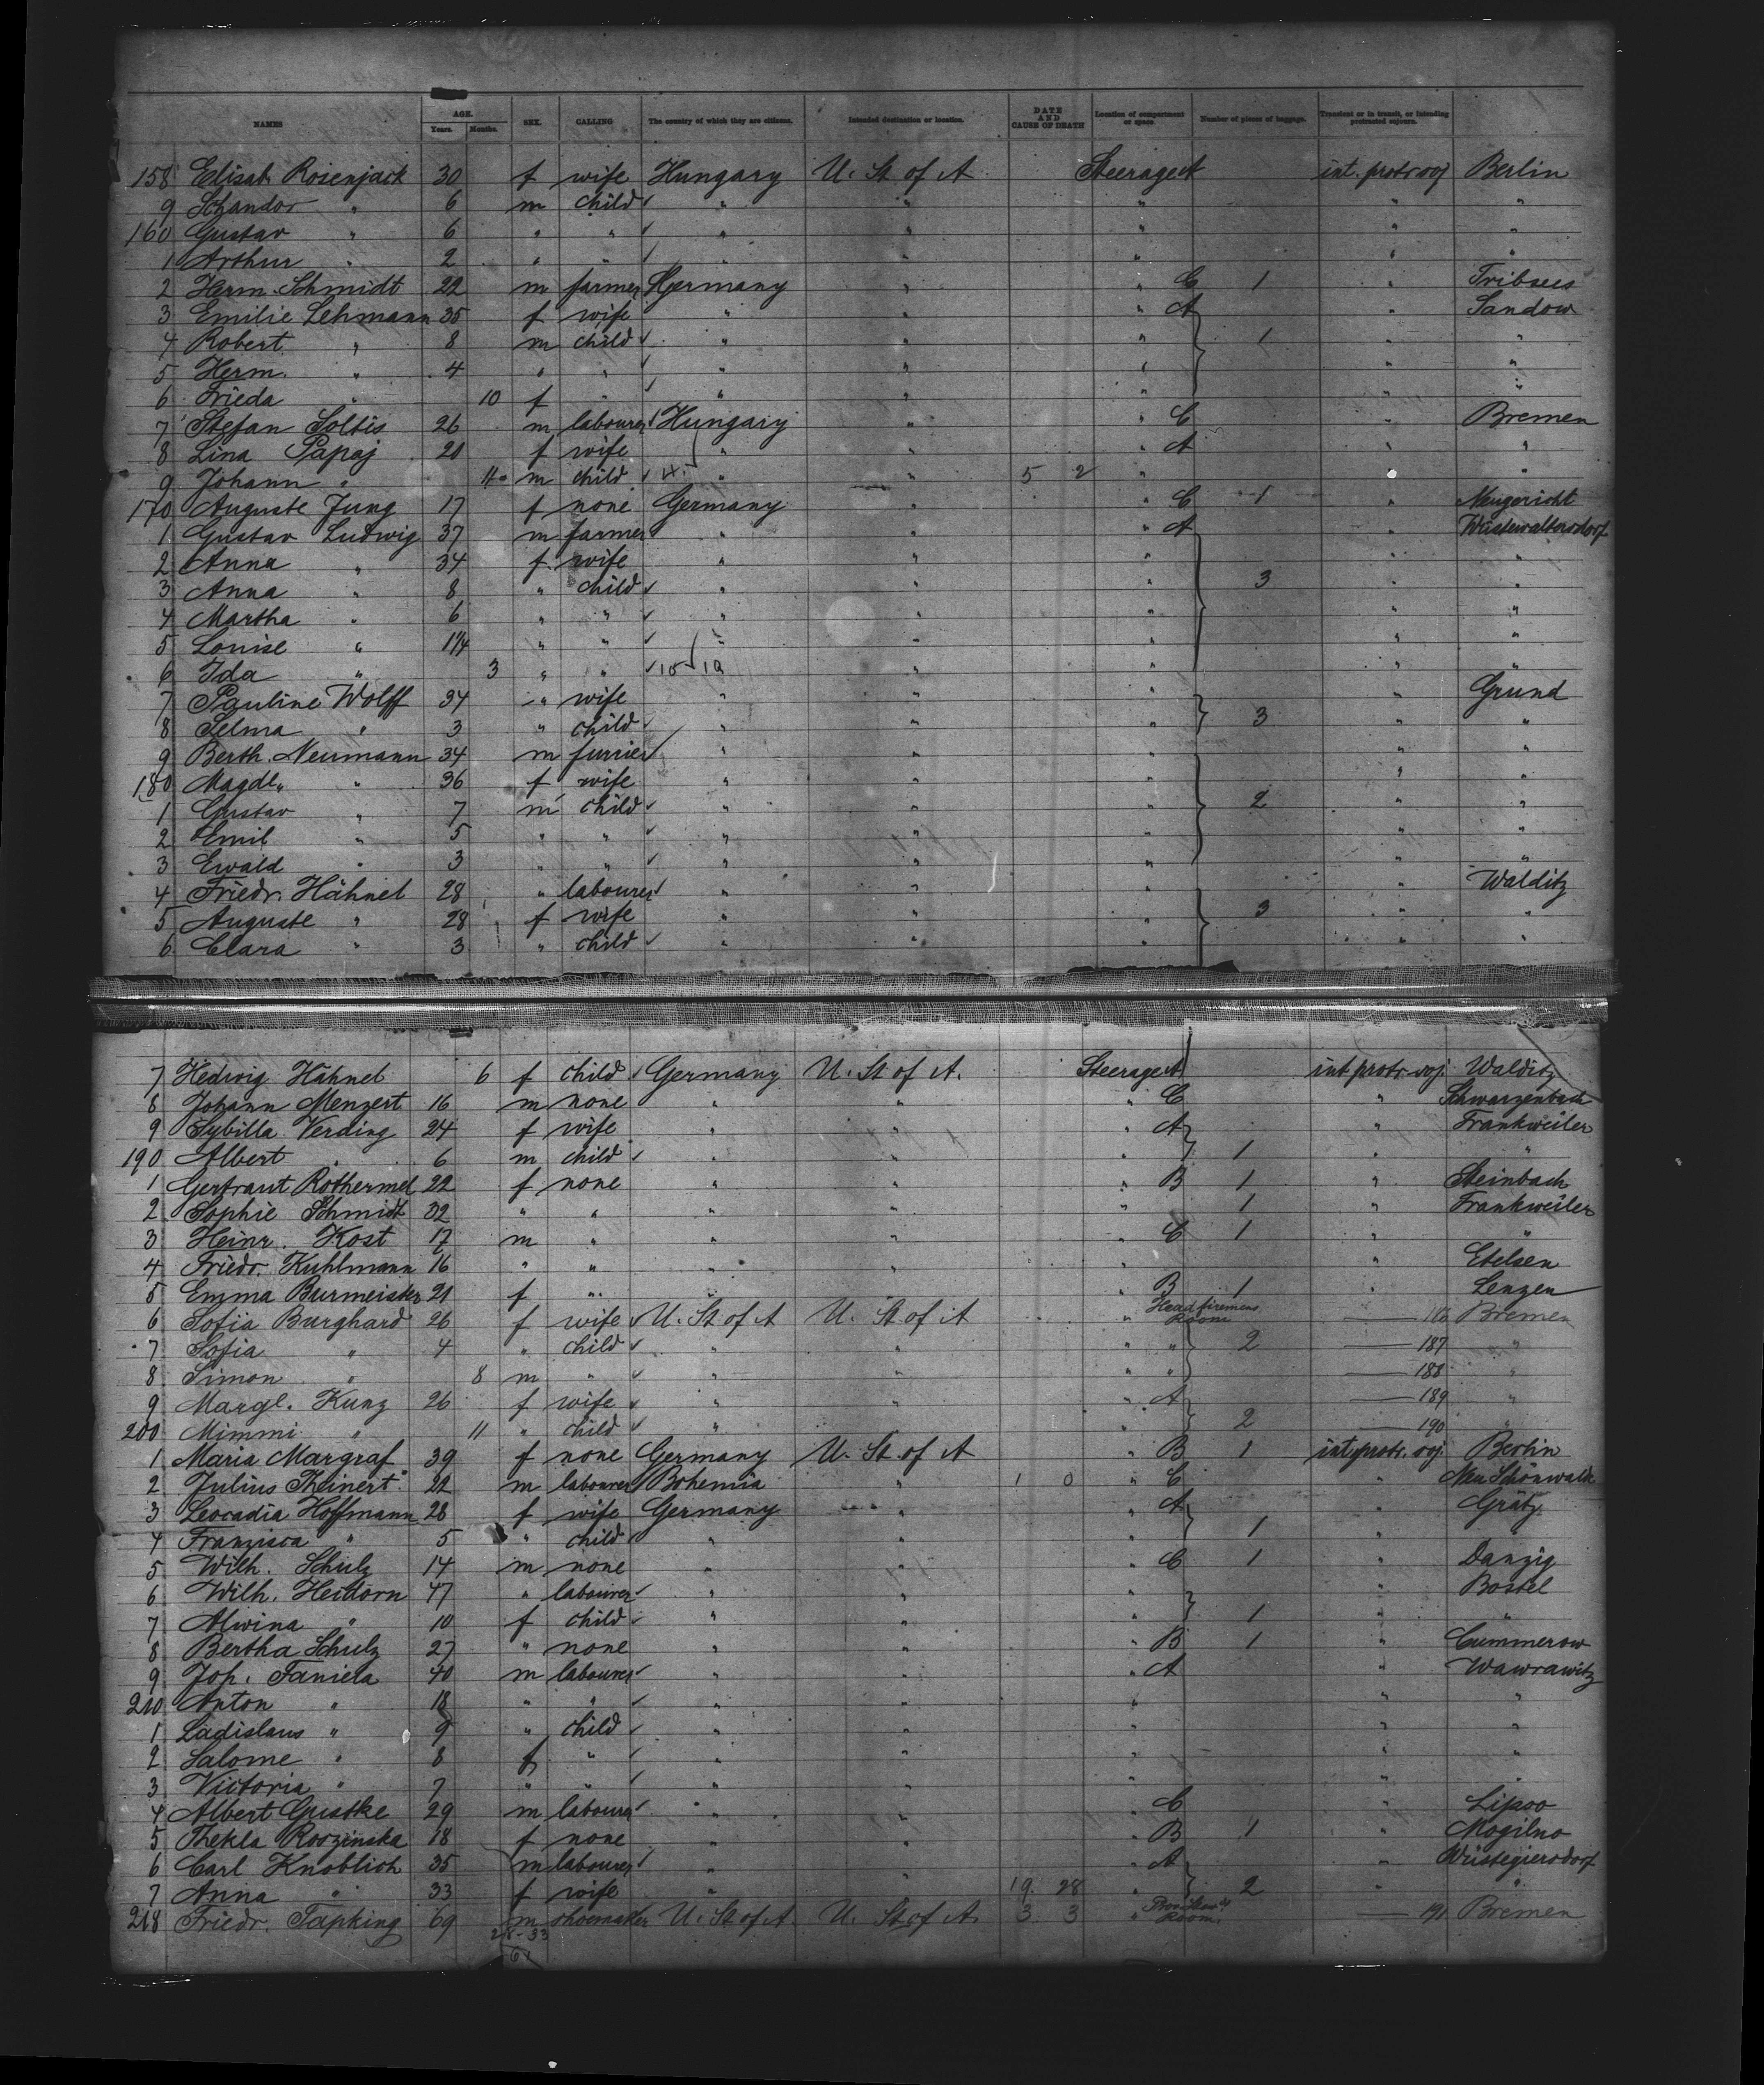 NAMES AGE. Years. Months. SEX. CALLING The country of which they are citizens. Intended destination or location. DATE AND CAUSE OF DEATH Location of compartment or space. Number of pieces of baggage. Transient or in transit, or intending protracted sojourn.
158 Elisab. Rosenjack 30 f wife Hungary U. St of A Steerage A int. protr. soj Berlin
9 Schandor " 6 m child " " " " "
160 Gustav " 6 " " " " " " "
1 Arthur " 2 " " " " " " "
2 Herm. Schmidt 22 m farmer Germany " " C 1 " Tribsees
3 Emilie Lehmann 35 f wife " " " A " Sandow
4 Robert " 8 m child " " " 1 " "
5 Herm. " 4 " " " " " " "
6 Frieda " 10 f " " " " " "
7 Stefan Soltis 26 m labourer Hungary " " C " Bremen
8 Lina Papaj 20 f wife " " " A " "
9 Johann " 11 m child " " 5 2 " "
170 Auguste Jung 17 f none Germany " " C 1 " Neugericht
1 Gustav Ludwig 37 m farmer " " " A " Wüstewaltersdorf
2 Anna " 34 f wife " " " " "
3 Anna " 8 " child " " " 3 " "
4 Martha " 6 " " " " " " "
5 Louise " 1¼ " " " " " " "
6 Ida " 3 " " " " " "
7 Pauline Wolff 34 " wife " " " " Grund
8 Selma " 3 " child " " " 3 " "
9 Berth. Neumann 34 m furrier " " " " "
180 Magdl. " 36 f wife " " " " "
1 Gustav " 7 m child " " " 2 " "
2 Emil " 5 " " " " " " "
3 Ewald " 3 " " " " " " "
4 Friedr. Hähnel 28 " labourer " " " " Walditz
5 Auguste " 28 f wife " " " 3 " "
6 Clara " 3 " child " " " " "
7 Hedwig Hähnel 6 f child Germany U. St of A. Steerage A int protr. soj. Walditz
8 Johann Menzert 16 m none " " " C " Schwarzenbach
9 Sybilla Verding 24 f wife " " " A " Frankweiler
190 Albert " 6 m child " " " 1 " "
1 Gertraut Rothermel 22 f none " " " B 1 " Steinbach
2 Sophie Schmidt 32 " " " " " 1 " Frankweiler
3 Heinr. Kost 17 m " " " " C 1 " "
4 Friedr. Kuhlmann 16 " " " " " " Etelsen
5 Emma Burmeister 21 f " " " " B 1 " Lenzen
6 Sofia Burghard 26 f wife U. St of A U. St of A " Headfiremens Room Bremen
7 Sofia " 4 " child " " " " 2 187 "
8 Simon " 8 m " " " " " 188 "
9 Margl. Kunz 26 f wife " " " A 189 "
200 Mimmi " 11 " child " " " 2 190 "
1 Maria Margraf 39 f none Germany U. St of A " B 1 int protr. soj. Berlin
2 Julius Theinert 22 m labourer Bohemia " 1 0 " C " Neu Schönwalde
3 Leocadia Hoffmann 28 f wife Germany " " A " Grätz
4 Franzisca " 5 " child " " " 1 " "
5 Wilh. Schulz 14 m none " " " C 1 " Danzig
6 Wilh. Heidorn 47 " labourer " " " " Bostel
7 Alwina " 10 f child " " " 1 " "
8 Bertha Schulz 27 " none " " " B 1 " Cummerow
9 Jos. Faniela 40 m labourer " " " A " Wawrawitz
210 Anton " 18 " " " " " " "
1 Ladislaus " 9 " child " " " " "
2 Salome " 8 f " " " " " "
3 Victoria " 7 " " " " " " "
4 Albert Gustke 29 m labourer " " " C " Lipso
5 Thekla Roszinska 18 f none " " " B 1 " Mogilno
6 Carl Knoblich 35 m labourer " " " A " Wüstegiersdorf
7 Anna " 33 f wife " " 19. 28 " 2 " "
218 Friedr. Tapking 69 m shoemaker U. St of A. U. St of A. 3 3 " Room. 191 Bremen